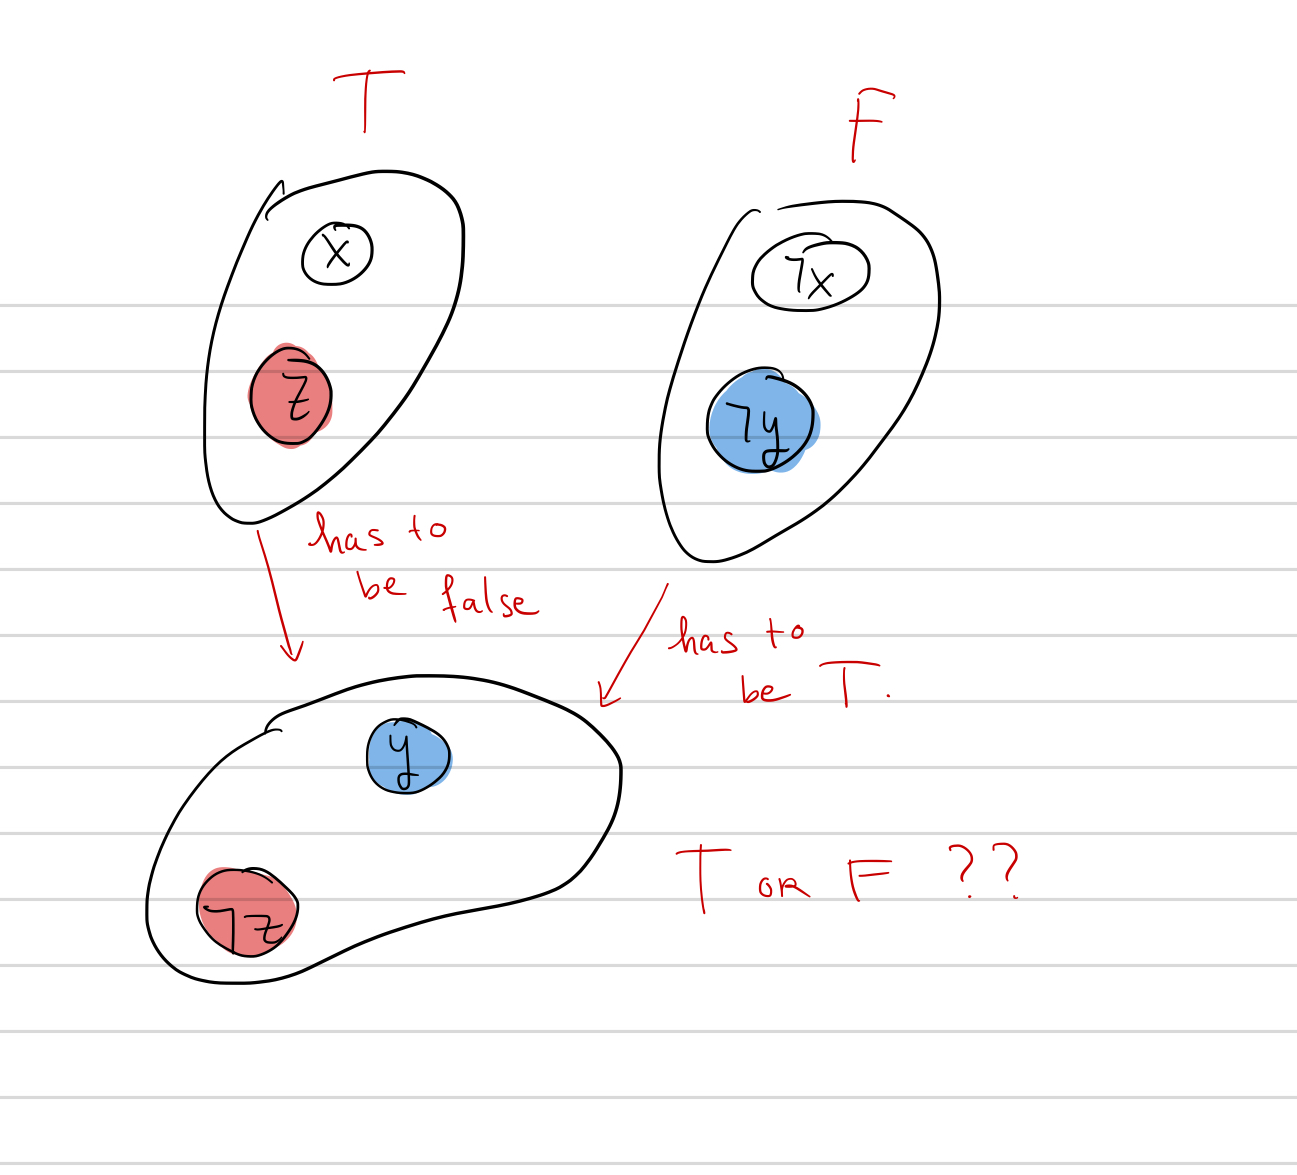 T
F
x
¬x
z
¬y
has to
be false
has to
be T.
y
T or F ??
¬z